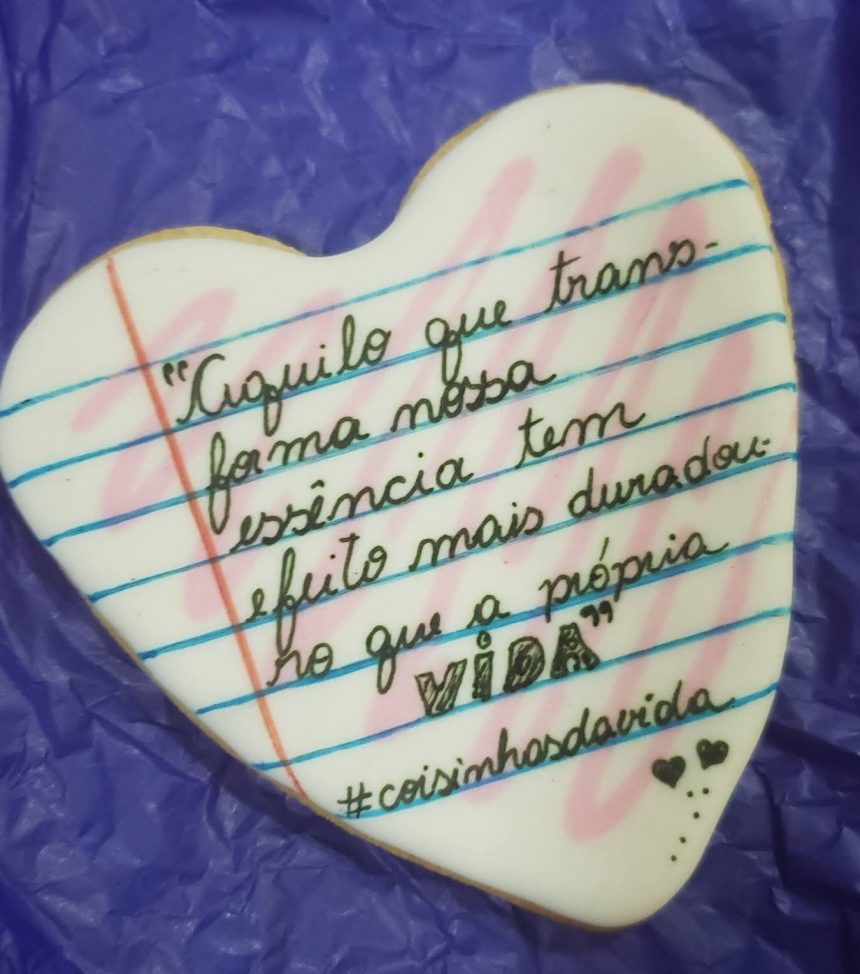 "Aquilo que trans-
forma nossa
essência tem
efeito mais duradou-
ro que a própria
VIDA"
#coisinhasdavida